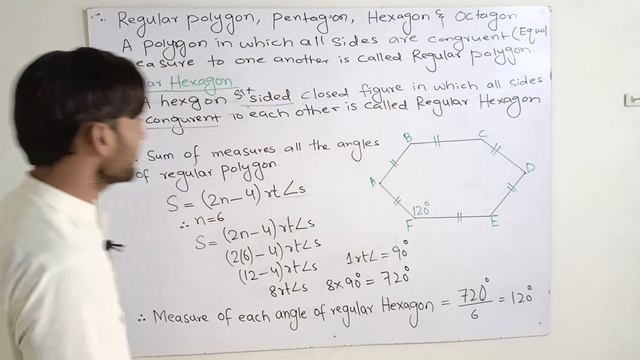 ∴ Regular polygon, Pentagon, Hexagon & Octagon
A polygon in which all sides are congruent (Equal
easure to one another is called Regular polygon
ar Hexagon
A hexgon sided closed figure in which all sides
congurent to each other is called Regular Hexagon
∴ Sum of measures all the angles
of regular polygon.
S = (2n-4) rt∠s
∴ n=6
S = (2n-4) rt∠s
(2(6)-4) rt∠s
(12-4) rt∠s
8rt∠s
1rt∠ = 90°
8x90° = 720°
A
B
C
D
E
F
120°
∴ Measure of each angle of regular Hexagon = 720°/6 = 120°